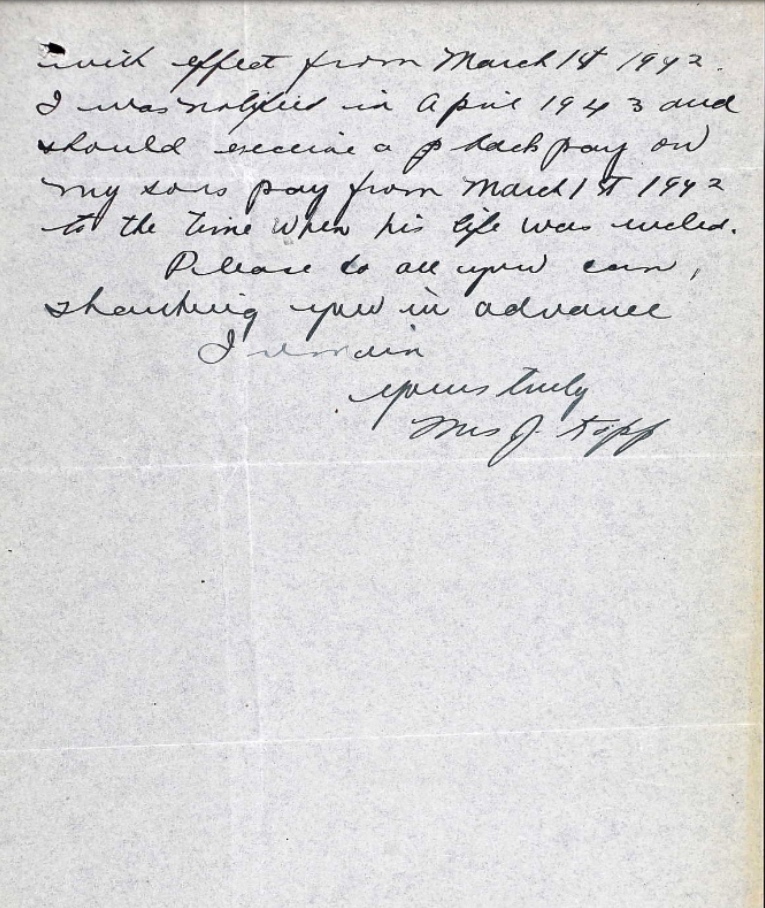 with effect from March 1st 1942.
I was notified in April 1943 and
should receive a back pay on
my sons pay from March 1st 1942
to the time when his life was ended.
Please to all you can,
thanking you in advance
I remain
yours truly
Mrs J. Kopp